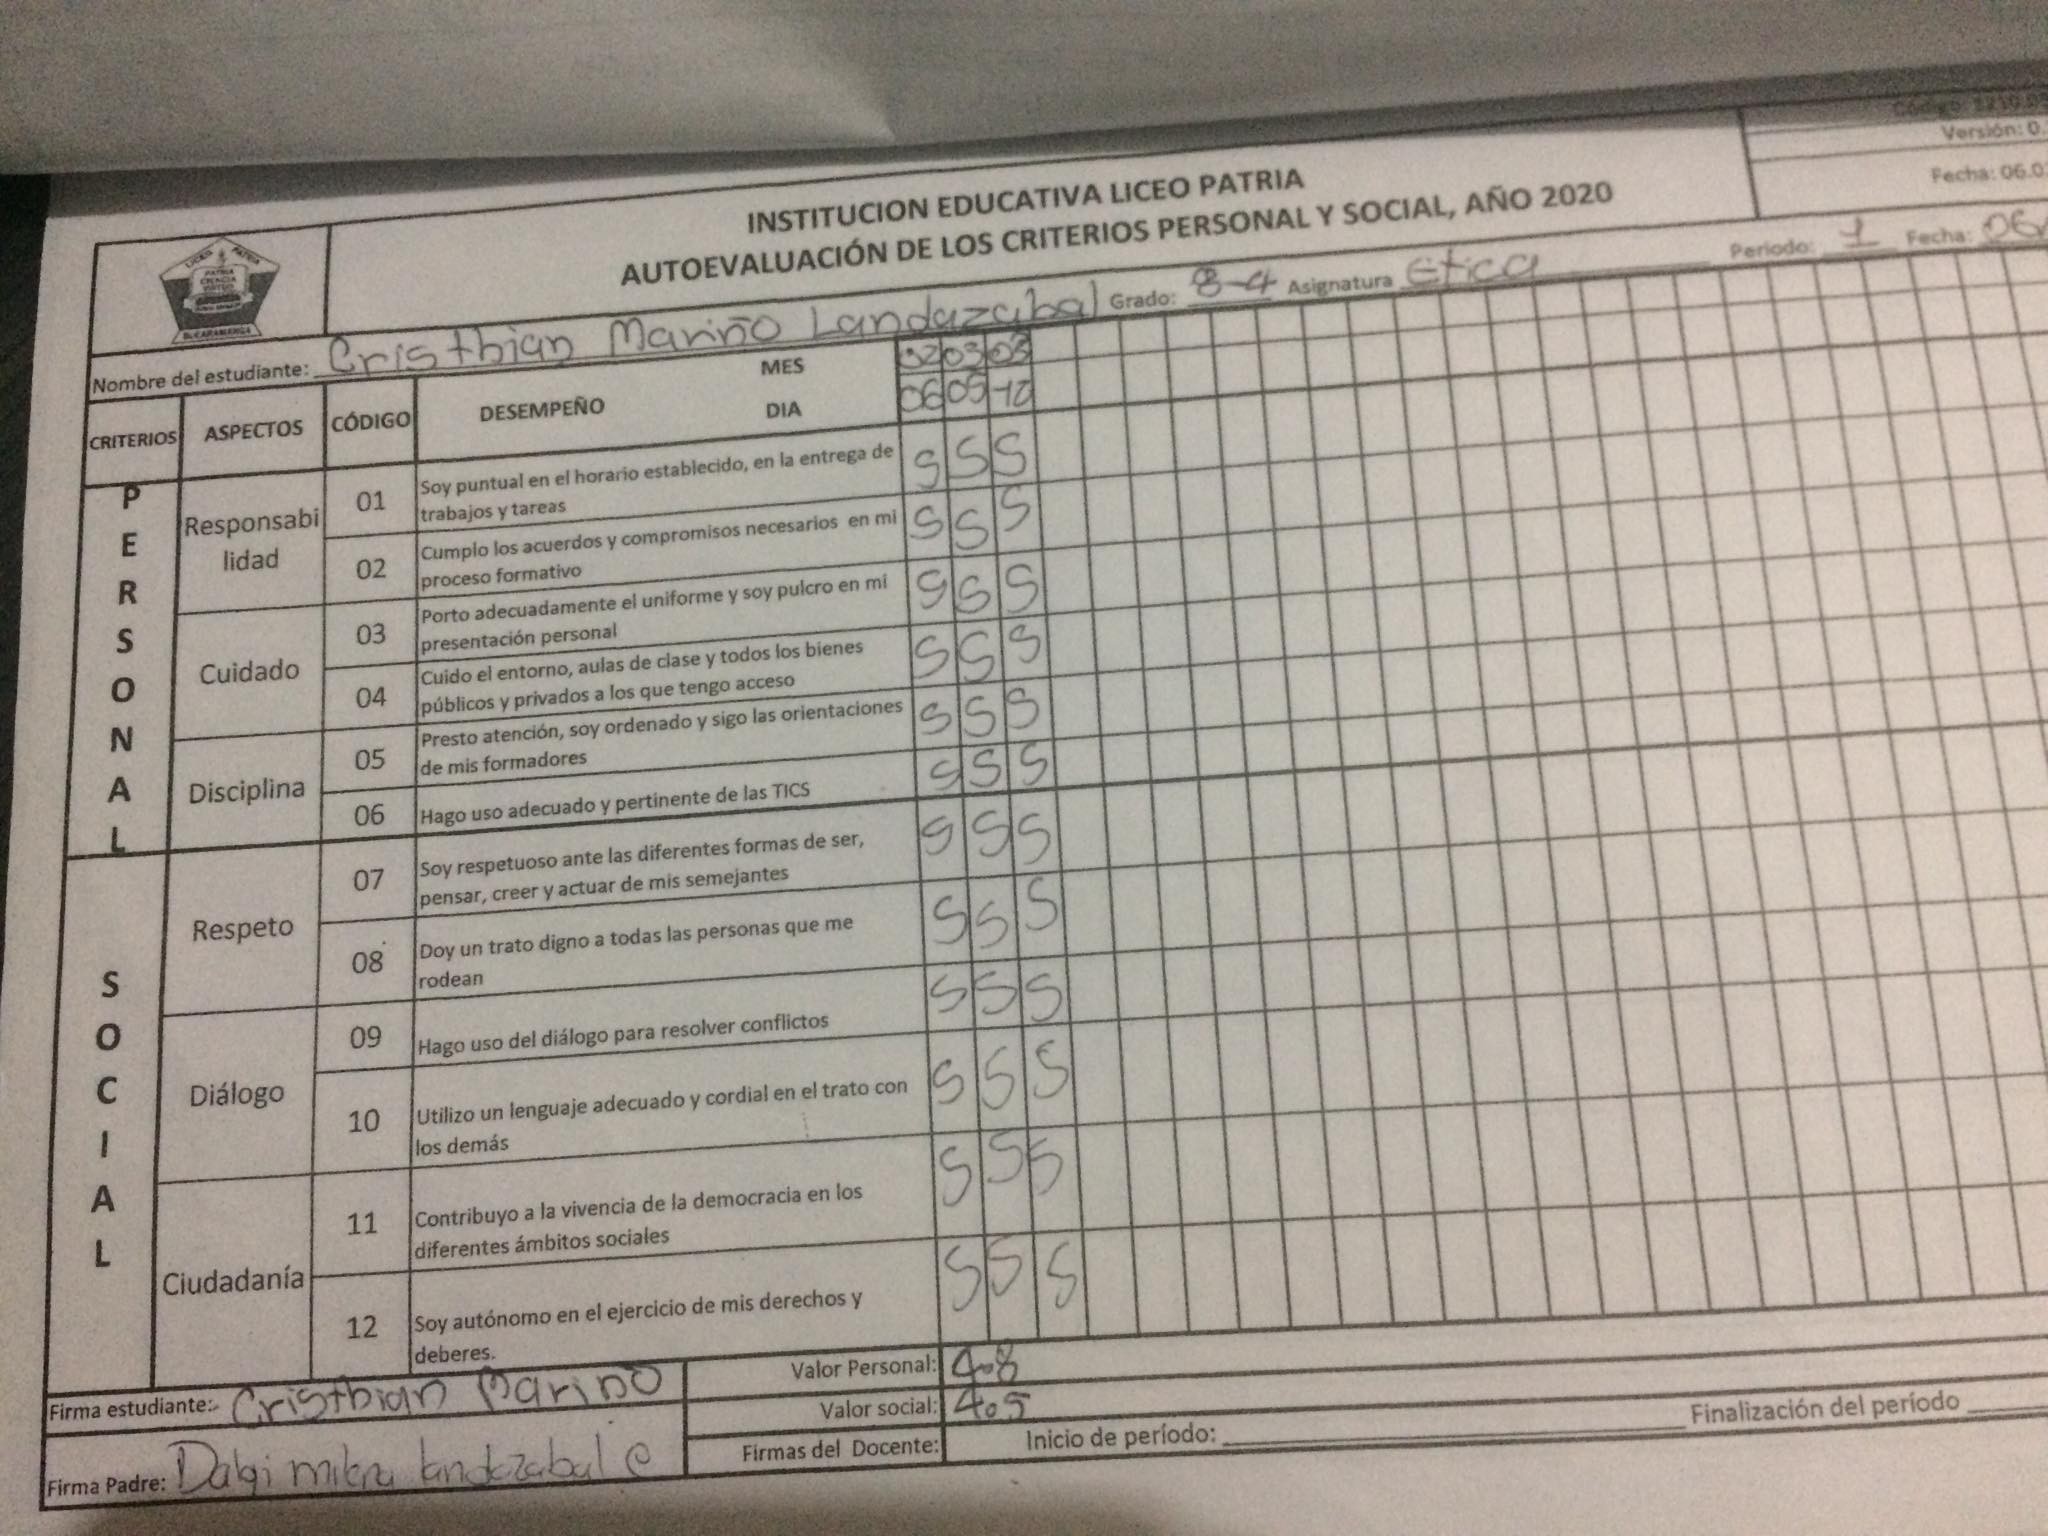 Código: 1210.0
Versión: 0.
Fecha: 06.0
INSTITUCION EDUCATIVA LICEO PATRIA
AUTOEVALUACIÓN DE LOS CRITERIOS PERSONAL Y SOCIAL, AÑO 2020
LICEO PATRIA
PATRIA
CIENCIA
VIRTUD
BUCARAMANGA
Nombre del estudiante: Cristbian Mariño Landazabal Grado: 8-4 Asignatura Etica Periodo: 1 Fecha: 06
CRITERIOS ASPECTOS CÓDIGO DESEMPEÑO MES 02 03 03
DIA 06 05 12
PERSONAL
Responsabilidad
01 Soy puntual en el horario establecido, en la entrega de S S S
trabajos y tareas
02 Cumplo los acuerdos y compromisos necesarios en mi S S S
proceso formativo
Cuidado
03 Porto adecuadamente el uniforme y soy pulcro en mi S S S
presentación personal
04 Cuido el entorno, aulas de clase y todos los bienes S S S
públicos y privados a los que tengo acceso
Disciplina
05 Presto atención, soy ordenado y sigo las orientaciones S S S
de mis formadores
06 Hago uso adecuado y pertinente de las TICS S S S
SOCIAL
Respeto
07 Soy respetuoso ante las diferentes formas de ser, S S S
pensar, creer y actuar de mis semejantes
08 Doy un trato digno a todas las personas que me S S S
rodean
Diálogo
09 Hago uso del diálogo para resolver conflictos S S S
10 Utilizo un lenguaje adecuado y cordial en el trato con S S S
los demás
Ciudadanía
11 Contribuyo a la vivencia de la democracia en los S S S
diferentes ámbitos sociales
12 Soy autónomo en el ejercicio de mis derechos y S S S
deberes.
Firma estudiante: Cristbian Mariño
Valor Personal: 4.8
Valor social: 4.5
Firma Padre: landazabal
Firmas del Docente: Inicio de período: Finalización del período